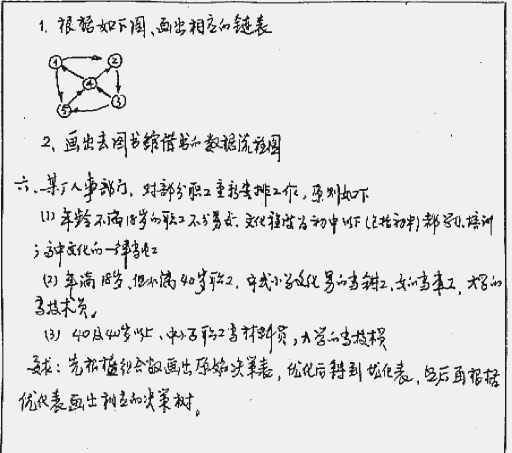 1. 根据如下图、画出相应的链表
1 2
4
5 3
2、画出去图书馆借书的数据流程图
六、某厂人事部门,对部分职工重新安排工作,原则如下
(1) 年龄不满18岁的职工不分男女、文化程度为初中以下(包括初中)都 培训
高中文化的一律当电工
(2) 年满18岁、但不满40岁职工,中或小学文化男的当钳工,女的当车工,大学的
当技术员。
(3) 40及40岁以上、中小学职工当材料员,大学的当技术员
要求:先根据组合数画出原始决策表,优化后得到优化表,然后再根据
优化表画出相应的决策树。